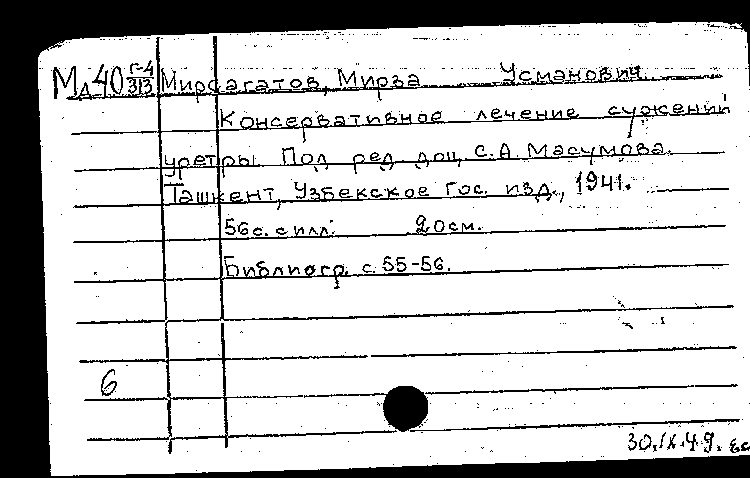 Мд40 Г-4/313 Мирсагатов, Мирза Усманович.
Консервативное лечение сужений
уретры. Под ред. доц. С.А. Масумова.
Ташкент, Узбекское Гос. изд., 1941.
56 с. с илл. 20 см.
Библиогр. с. 55-56.
6
30.IX.49.